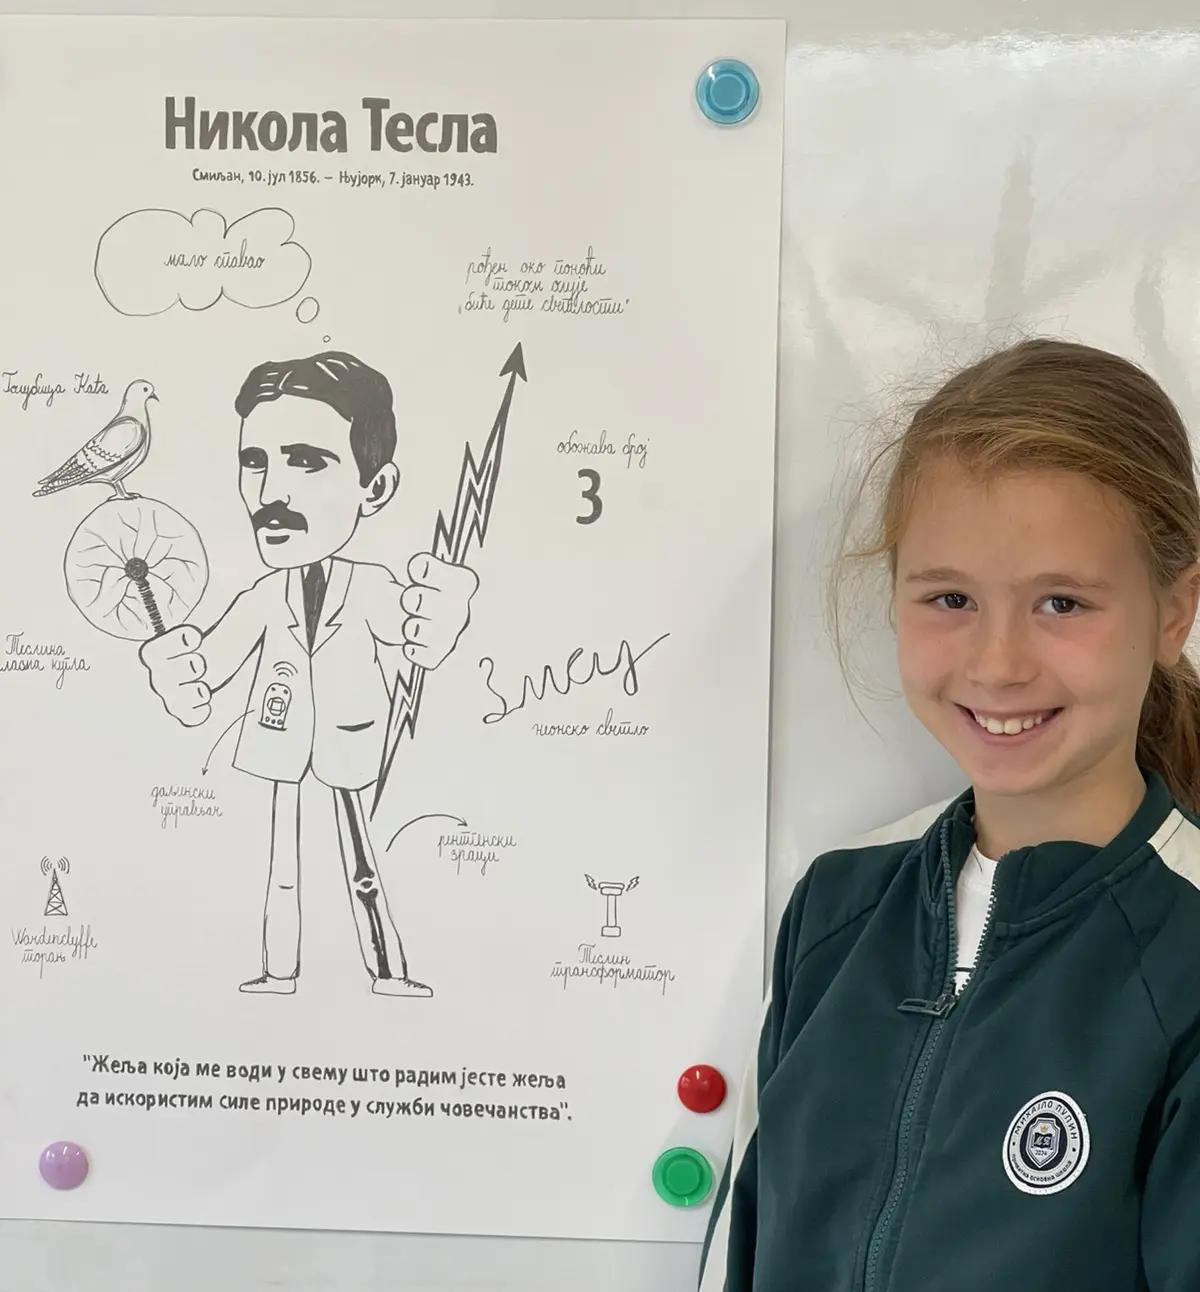 Никола Тесла
Смиљан, 10. јул 1856. – Њујорк, 7. јануар 1943.
мало спавао
рођен око поноћи
током олује
„биће дете светлости"
Голубица Кађа
обожава број
3
Теслина
плазма кугла
Змеу
неонско светло
даљински
управљач
рентгенски
зраци
Wardenclyffe
торањ
Теслин
трансформатор
"Жеља која ме води у свему што радим јесте жеља
да искористим силе природе у служби човечанства".
МИХАЈЛО ПУПИН
2024
приватна основна школа